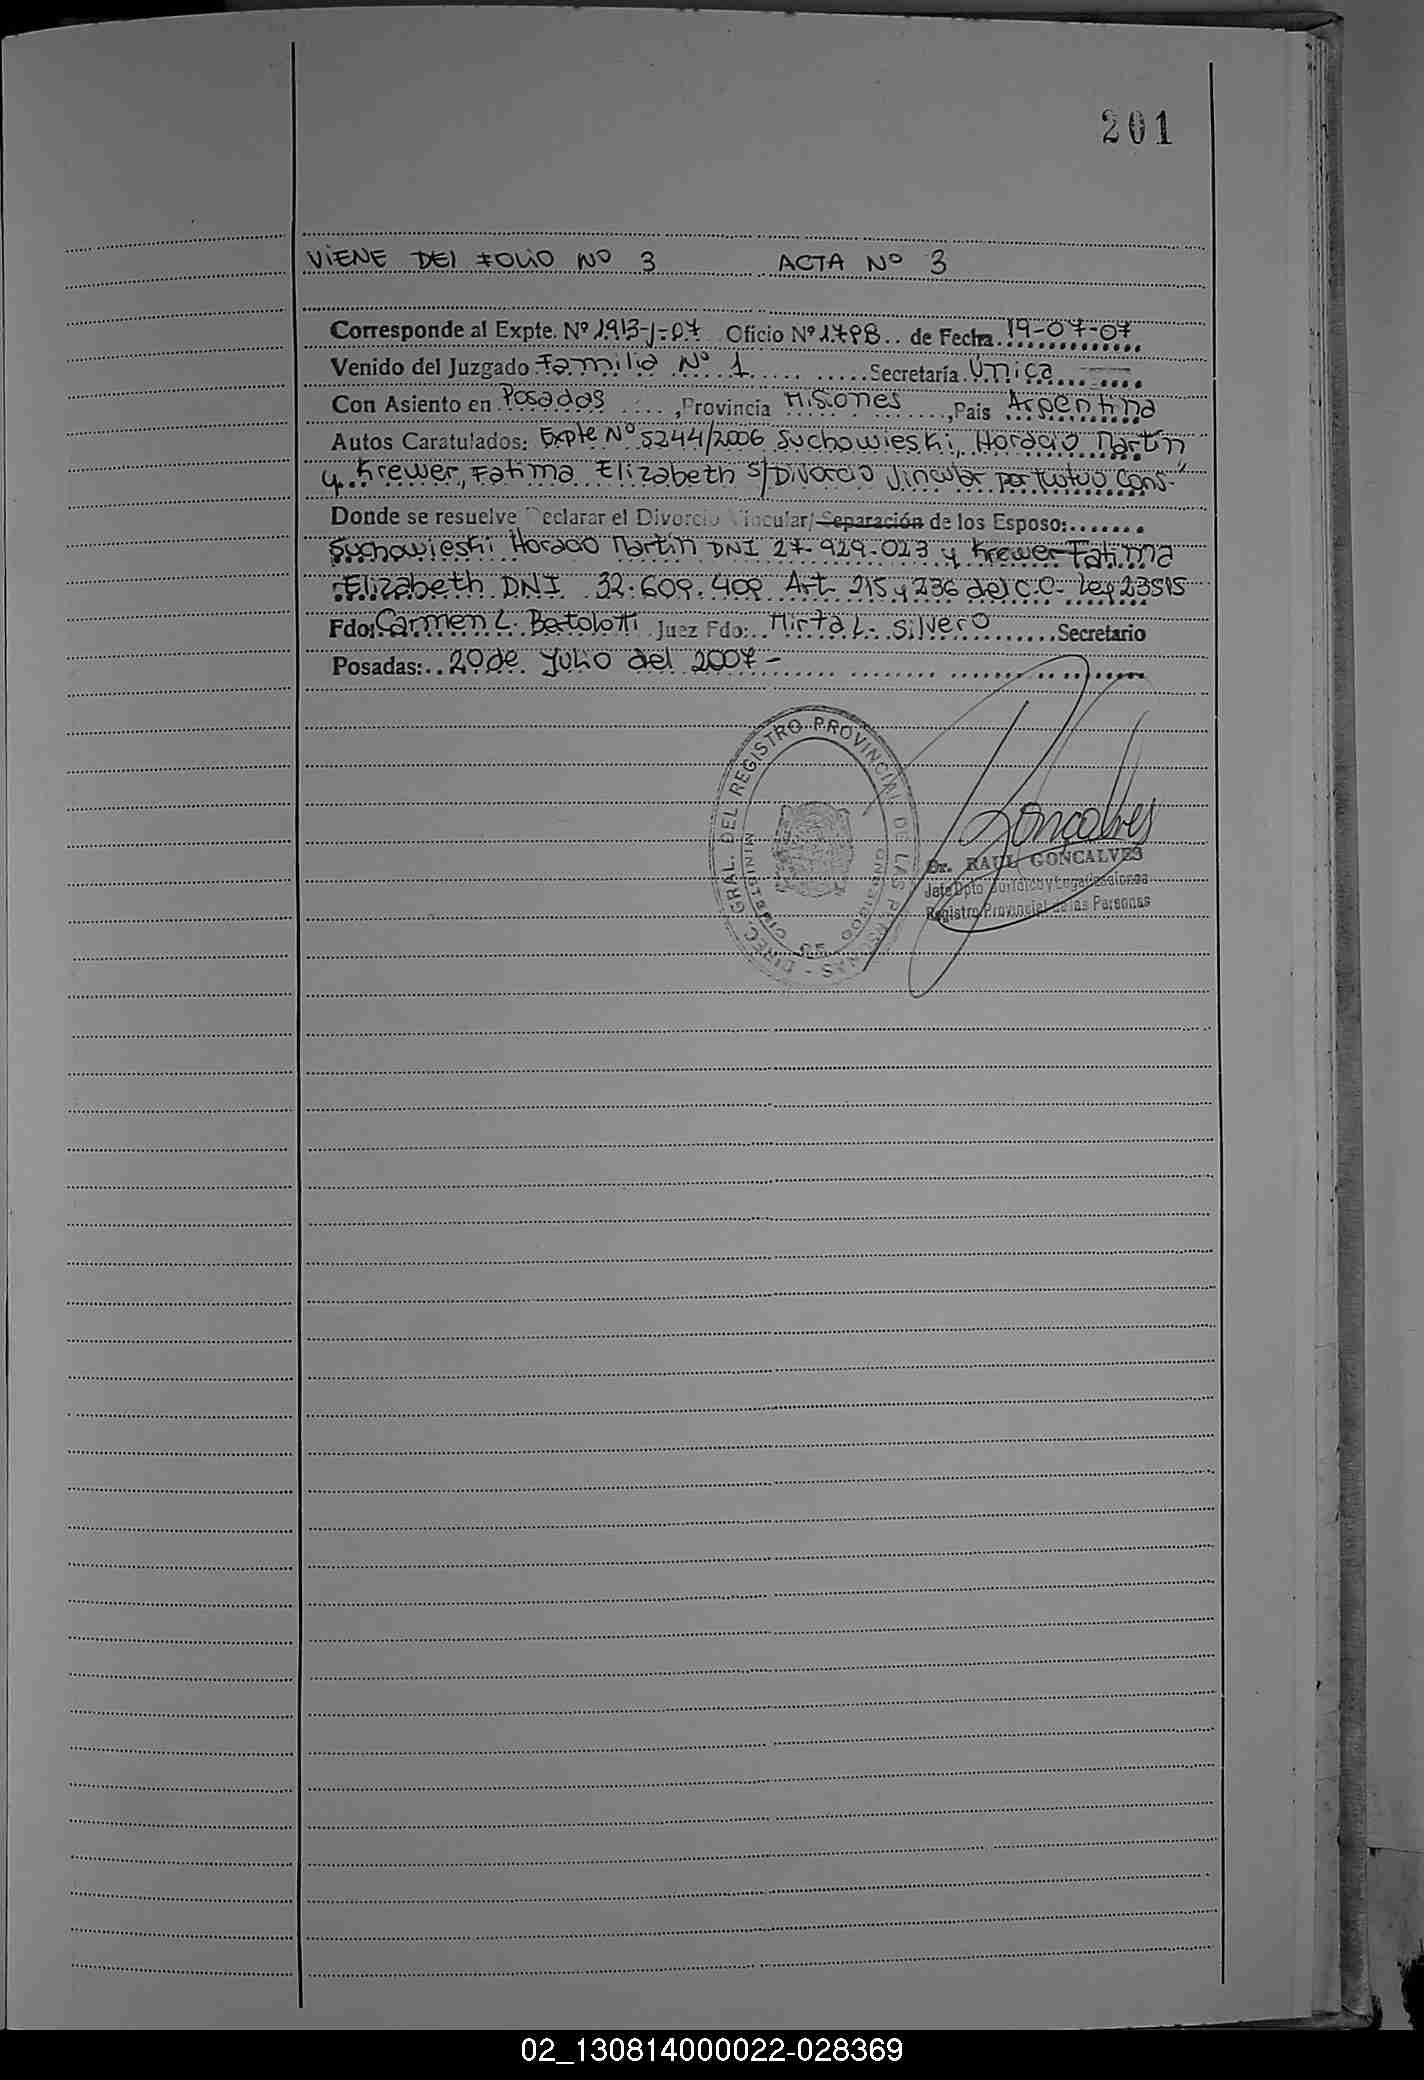 201
VIENE DEL FOLIO Nº 3 ACTA Nº 3
Corresponde al Expte. Nº 1913-J-07 Oficio Nº 1798.. de Fecha 19-07-07
Venido del Juzgado Familia Nº 1 Secretaría Única
Con Asiento en Posadas ,Provincia Misiones ,Pais Argentina
Autos Caratulados: Expte Nº 5244/2006 Suchowieski, Horacio Martín
y Krewer, Fatima Elizabeth s/Divorcio Vincular por Mutuo Cons-
Donde se resuelve Declarar el Divorcio Vincular/Separación de los Esposo:
Suchowieski Horacio Martín DNI 27.929.023 y Krewer Fatima
Elizabeth DNI 32.609.409 Art. 215 y 236 del C.C- Ley 23515
Fdo: Carmen L. Bertolotti Juez Fdo: Mirta L. Silvero Secretario
Posadas: 20 de Julio del 2007-
DIREC. GRAL. DEL REGISTRO PROVINCIAL DE LAS PERSONAS
Gonçalves
Dr. RAUL GONCALVES
Jefe Dpto Jurídico y Legalizaciones
Registro Provincial de las Personas
02_130814000022-028369